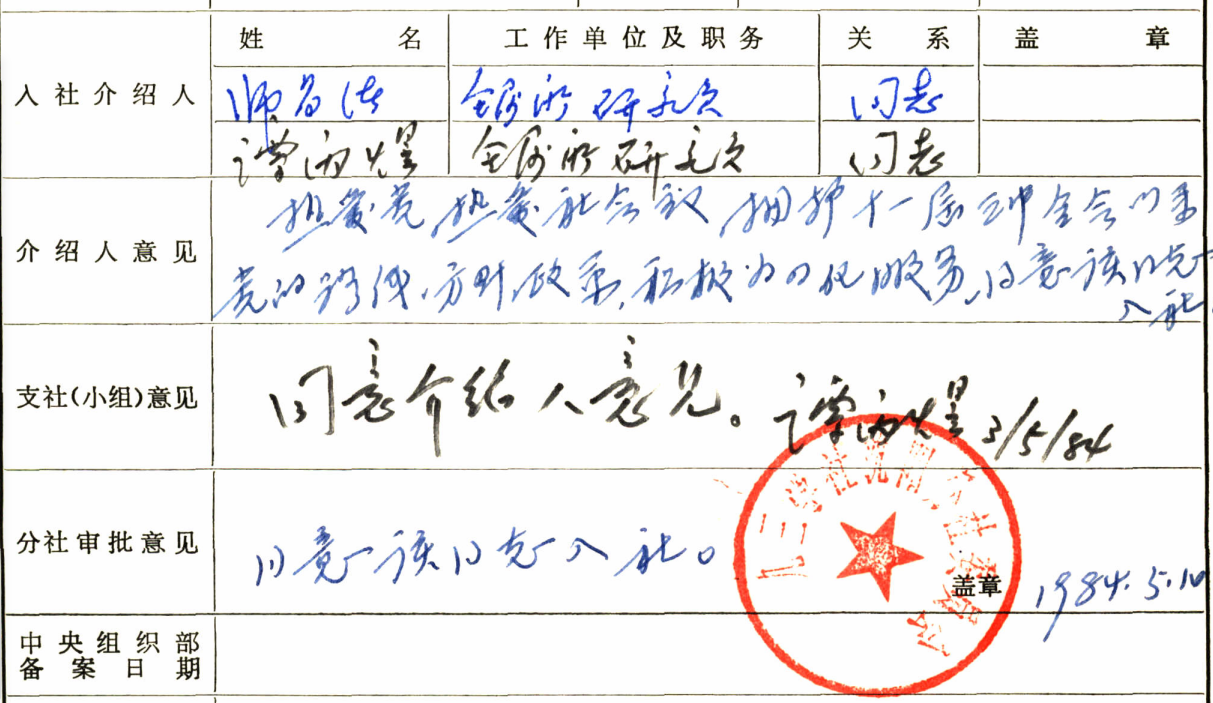 姓 名 工作单位及职务 关 系 盖 章
入社介绍人
师昌绪 金属所 研究员 同志
谭炳煜 金属所 研究员 同志
介绍人意见
热爱党,热爱社会主义,拥护十一届三中全会以来
党的路线、方针、政策,积极为四化服务,同意该同志
入社.
支社(小组)意见 同意介绍人意见。谭炳煜 3/5/84
分社审批意见 同意该同志入社。
九三学社沈阳分社委员会
盖章 1984.5.10
中央组织部
备案日期